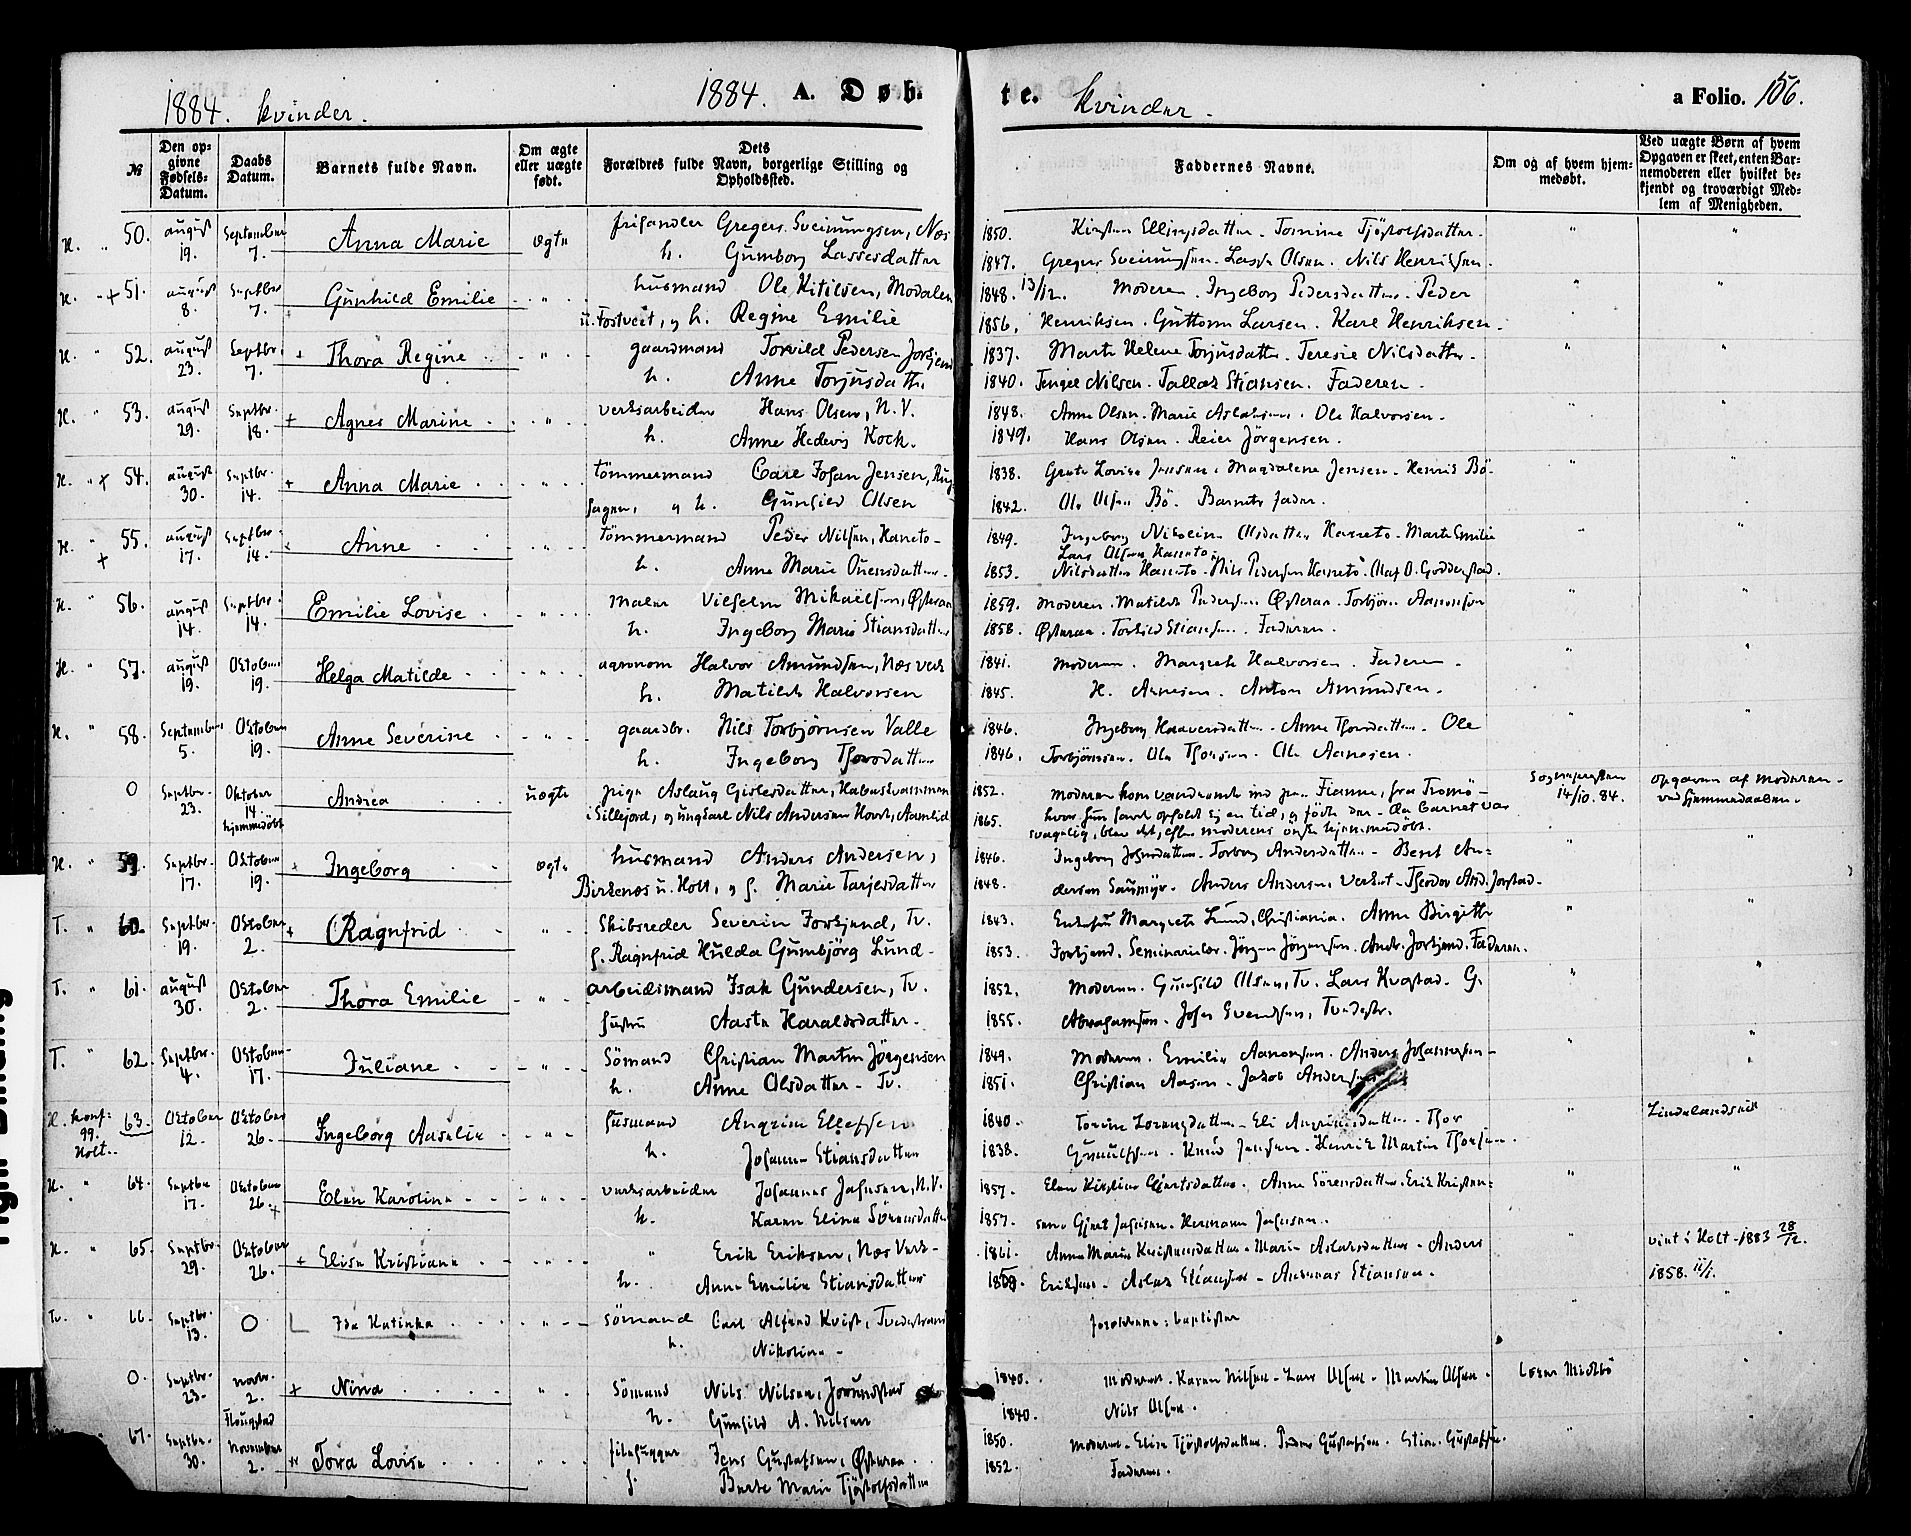 1884. kvinder.
1884. A. Døb- te. kvinder.
a Folio. 156.
№
Den opgivne Fødsels-Datum.
Daabs Datum.
Barnets fulde Navn.
Om ægte eller uægte født.
Dets Forældres fulde Navn, borgerlige Stilling og Opholdssted.
Faddernes Navne.
Om og af hvem hjemmedøbt.
Ved uægte Børn af hvem Opgaven er skeet, enten Barnemoderen eller hvilket bekjendt og troværdigt Medlem af Menigheden.
H. " 50. august 19. September 7. Anna Marie ægte Gregers Sveinungsen, Næs 1850. Kirsten Ellingsdatter. Tomine Tjöstolfsdatter.
h. Gumborg Lassesdatter 1847. Gregers Sveinungsen. Lasse Olsen. Nils Henriksen.
H. + 51. august 8. Septbr 7. Gunhild Emilie " husmand Ole Kitilsen, Modalen 1848. 13/12. Moderen. Ingeborg Pedersdatter. Peder
u. Fostveit, og h. Regine Emilie 1856. Henriksen. Guttorm Larsen. Karl Henriksen.
H. " 52. august 23. Septbr. 7. + Thora Regine " gaardmand Torvild Pedersen 1837. Marte Helene Torjusdatter. Teresie Nilsdatter.
h. Anne Torjusdatter 1840. Tengel Nilsen. Tallak Stiansen. Faderen.
H. " 53. august 29. Septbr. 18. + Agnes Marine " verksarbeider Hans Olsen, N.V. 1848. Anne Olsen. Marie Aslaksen. Ole Halvorsen.
h. Anne Hedevig Kock. 1849. Hans Olsen. Reier Jörgensen.
H. " + 54. august 30. Septbr. 14. + Anna Marie " tömmermand Carl Johan Jensen, 1838. Grete Lovise Jensen. Magdalene Jensen. Henrik Bö.
og h. Gunhild Olsen 1842. Ole Olsen Bö. Barnets fader.
H. " + 55. august 17. Septbr. 14. Anne " tömmermand Peder Nilsen, Haneto 1849. Ingeborg Nikoline Olsdatter Haneto. Marte Emilie
Lars Olsen Haneto
h. Anne Marie Ouensdatter. 1853. Nilsdatter Haneto. Nils Pedersen Haneto. Olaf O. Godderstad.
H. " 56. august 14. Septbr. 14. Emilie Lovise " Maler Vilhelm Mikaelsen, Österaa 1859. Moderen. Matilde Österaa. Torbjörn Aanonsen
h. Ingeborg Marie Stiansdatter 1858. Österaa. Torkild Stiansen. Faderen.
H. " 57. august 19. Oktober 19. Helga Matilde " agronom Halvor Amundsen, Næs verk 1841. Moderen. Margrete Halvorsen. Faderen.
h. Matilde Halvorsen 1845. H. Aanesen. Anton Amundsen.
H. " 58. September 5. Oktober 19. Anne Severine " gaardbr. Nils Torbjörnsen Valle 1846. Ingeborg Haaversdatter. Anne Thorsdatter. Ole
h. Ingeborg Thorsdatter 1846. Torbjörnsen. Ole Thorsen. Ole Aanesen.
0 Septbr. 23. Oktober 14. hjemmedöbt Andrea uægte pige Aslaug Gislesdatter, 1852. Moderen kom vandrende ind fra Tromö- Sognepresten 14/10.84. opgaven af moderen
i Sillejord, og ungkarl Nils Andersen Hovet, Aamlid 1865. hvor hun havde opholdt sig en tid, og födte der. da barnet var ved hjemmedaaben.
svagelig, blev det, efter moderens önske hjemmedöbt.
H. " 59. Septbr. 17. Oktober 19. + Ingeborg ægte husmand Anders Andersen, 1846. Ingeborg Johnsdatter. Torborg Andersdatter. Bent An=
Birkenes u. Holt, og h. Marie Tarjesdatter 1848. dersen Saumyr. Anders Andersen Verket. Theodor And. Jorstad.
T. " 60. Septbr. 19. Oktober 2. + Ragnfrid " Skibsreder Severin Forkjend, Tv. 1843. Enkefru Margrete Lund, Christiania. Anne Birgitte
h. Ragnfrid Hulda Gumbjörg Lund 1853. Seminarielær. Jörgen Jörgensen. Faderen.
T. " 61. august 30. Oktober 2. Thora Emilie " arbeidsmand Isak Gundersen, Tv. 1852. Moderen. Gunhild Olsen, Tv. Lars Kvastad. G.
hustru Aaste Haraldsdatter. 1855. Abrahamsen. Johan Svendsen, Tvedestr.
T. " 62. Septbr. 4. Oktober 17. Juliane " Sömand Christian Martin Jörgensen 1849. Moderen. Emilie Aanonsen. Anders Johannesen
h. Anne Olsdatter. Tv. 1851. Christian Aasen. Jakob Andersen
H. konf: 99. Holt. 63. Oktober 12. Oktober 26. Ingeborg Aasulie " husmand Angrim Ellefsen 1840. Torine Lorensdatter. Eli Angrimsdatter. Thor Lindelandseie
h. Johanne Stiansdatter 1838. Gunulfsen. Knud Jensen. Henrik Martin Thorsen.
H. " 64. Septbr 17. Oktober 26. Elen Karoline " verksarbeider Johannes Jahnsen, N.V. 1857. Elen Kirstine Gjertsdatter. Anne Sörensdatter. Erik Kristen=
h. Karen Eline Sörensdatter 1857. sen. Gjert Jahnsen. Hermann Jahnsen.
H. " 65. Septbr. 29. Oktober 26. + Elise Kristiane " Erik Eriksen, Næs Verk 1861. Anne Marie Kristensdatter. Marie Aslaksdatter. Anders viet i Holt 1883 28/12.
h. Anne Emilie Stiansdatter Eriksen. Aslak Stiansen. Andreas Stiansen. 1858. 11/1.
Tv. " 66. Septbr. 13. 0 Ida Katinka " sömand Carl Alfred Kvist, Tvedestrand forældrene: baptister
h. Nikoline
0. Septbr. 23. Novbr. 2. Flougstad + Nina " Sömand Nils Nilsen, Jorundstad 1840. Moderen. Karen Nilsen. Lars Olsen. Martin Olsen.
h. Gunhild A. Nilsen 1840. Nils Olsen.
67. Septbr. 30. November 2. Tora Lovise " filehugger Jens Gustafsen, Österaa. 1850. Moderen. Elise Tjöstolfsdatter. Peder Gustafsen. Stian Gustafsen.
h. Berte Marie Tjöstolfsdatter 1852. Faderen.